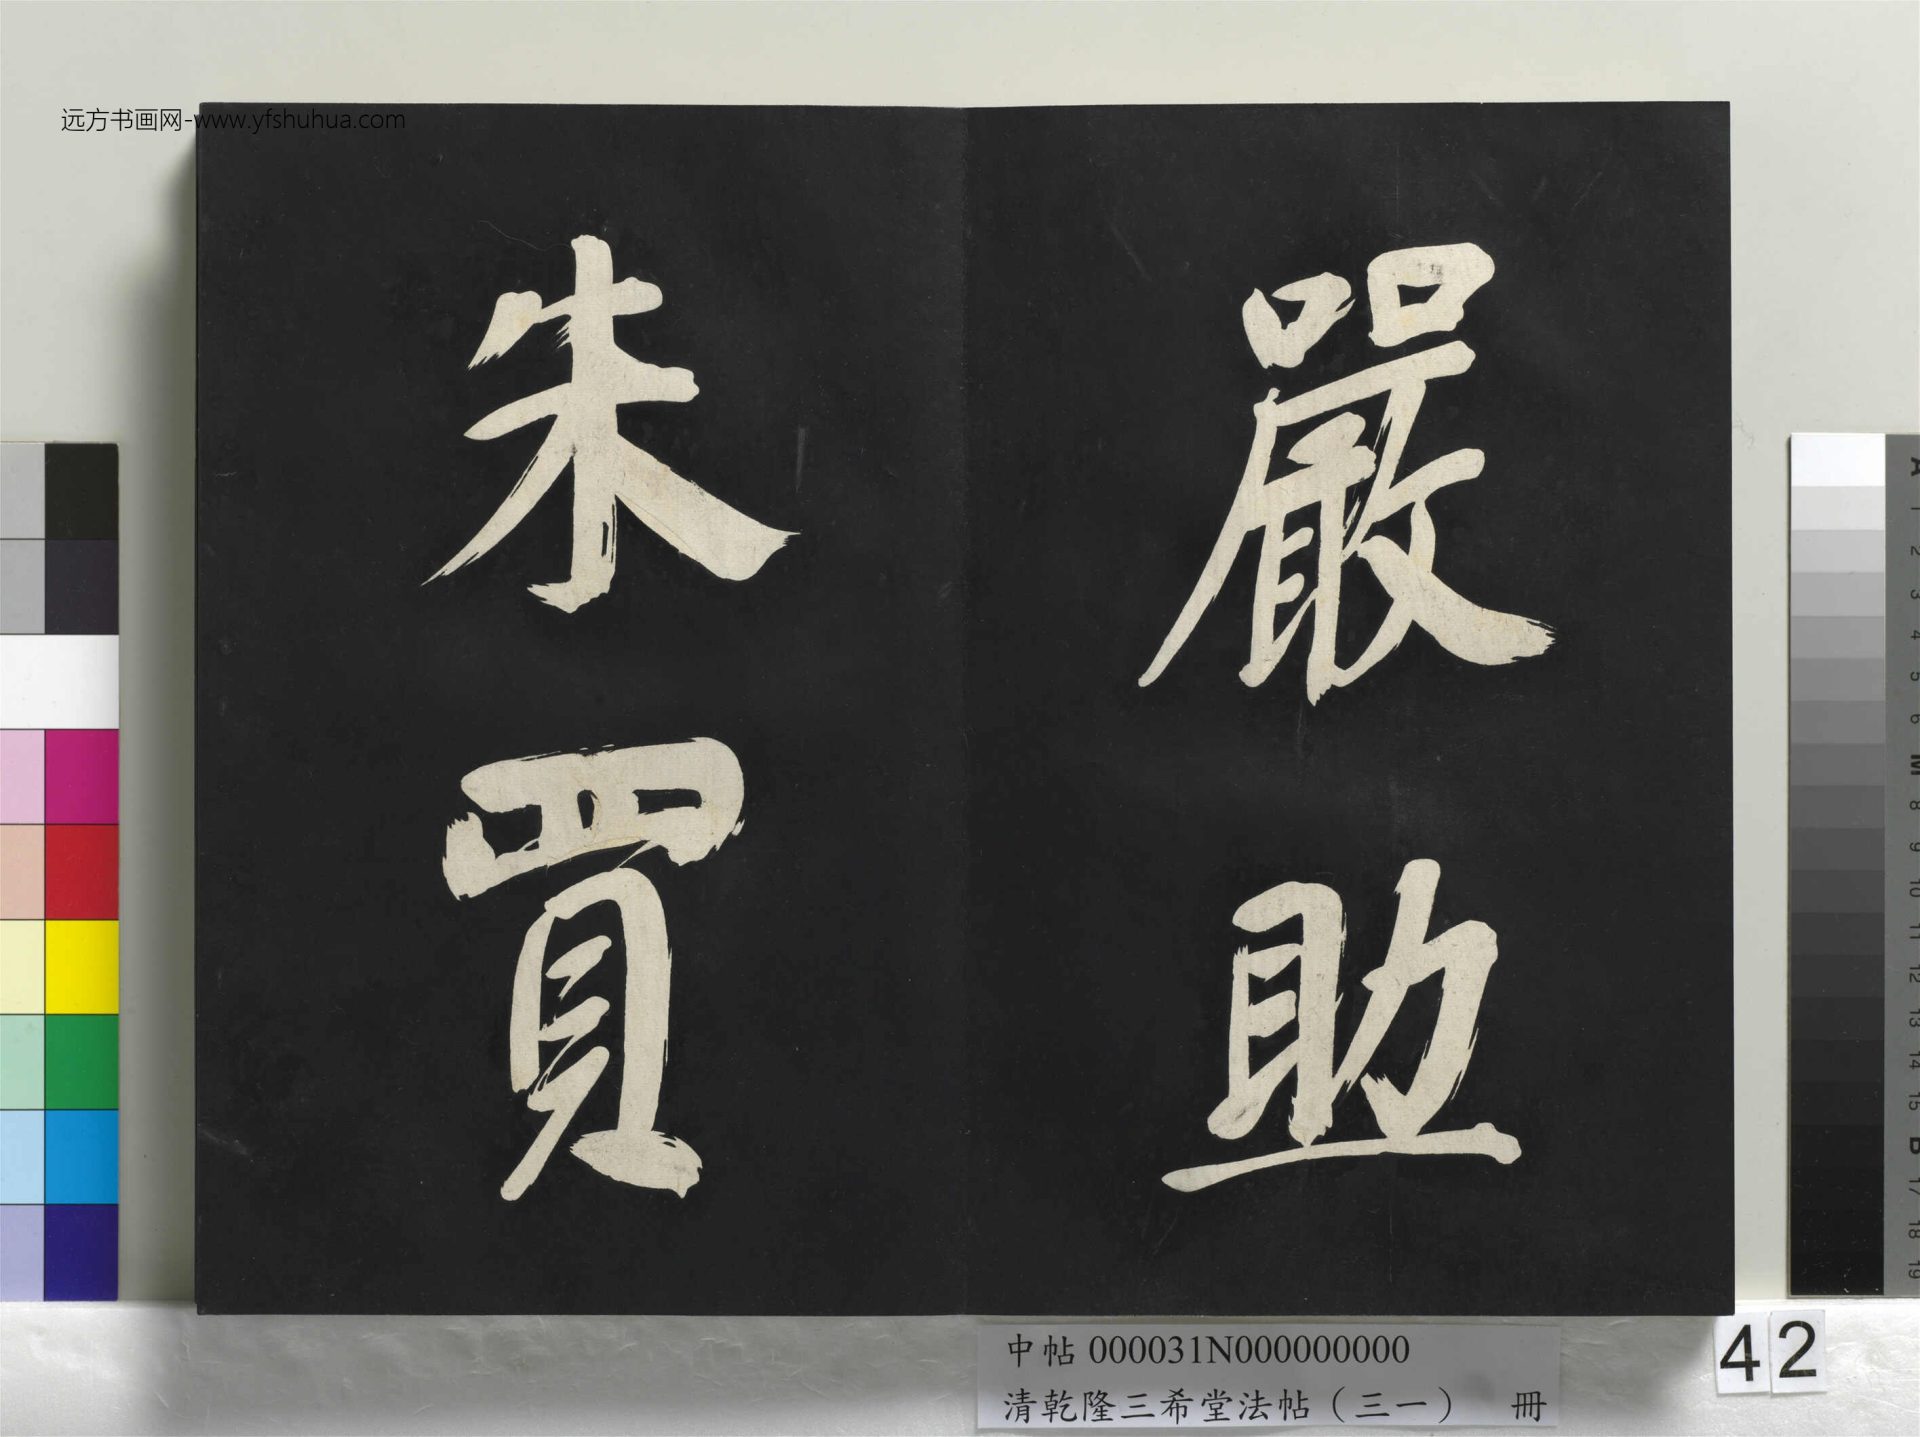 远方书画网-www.yfshuhua.com
嚴助
朱買
中帖 000031N000000000
清乾隆三希堂法帖（三一） 冊
42
A 1 2 3 4 5 6 M 8 9 10 11 12 13 14 15 B 17 18 19